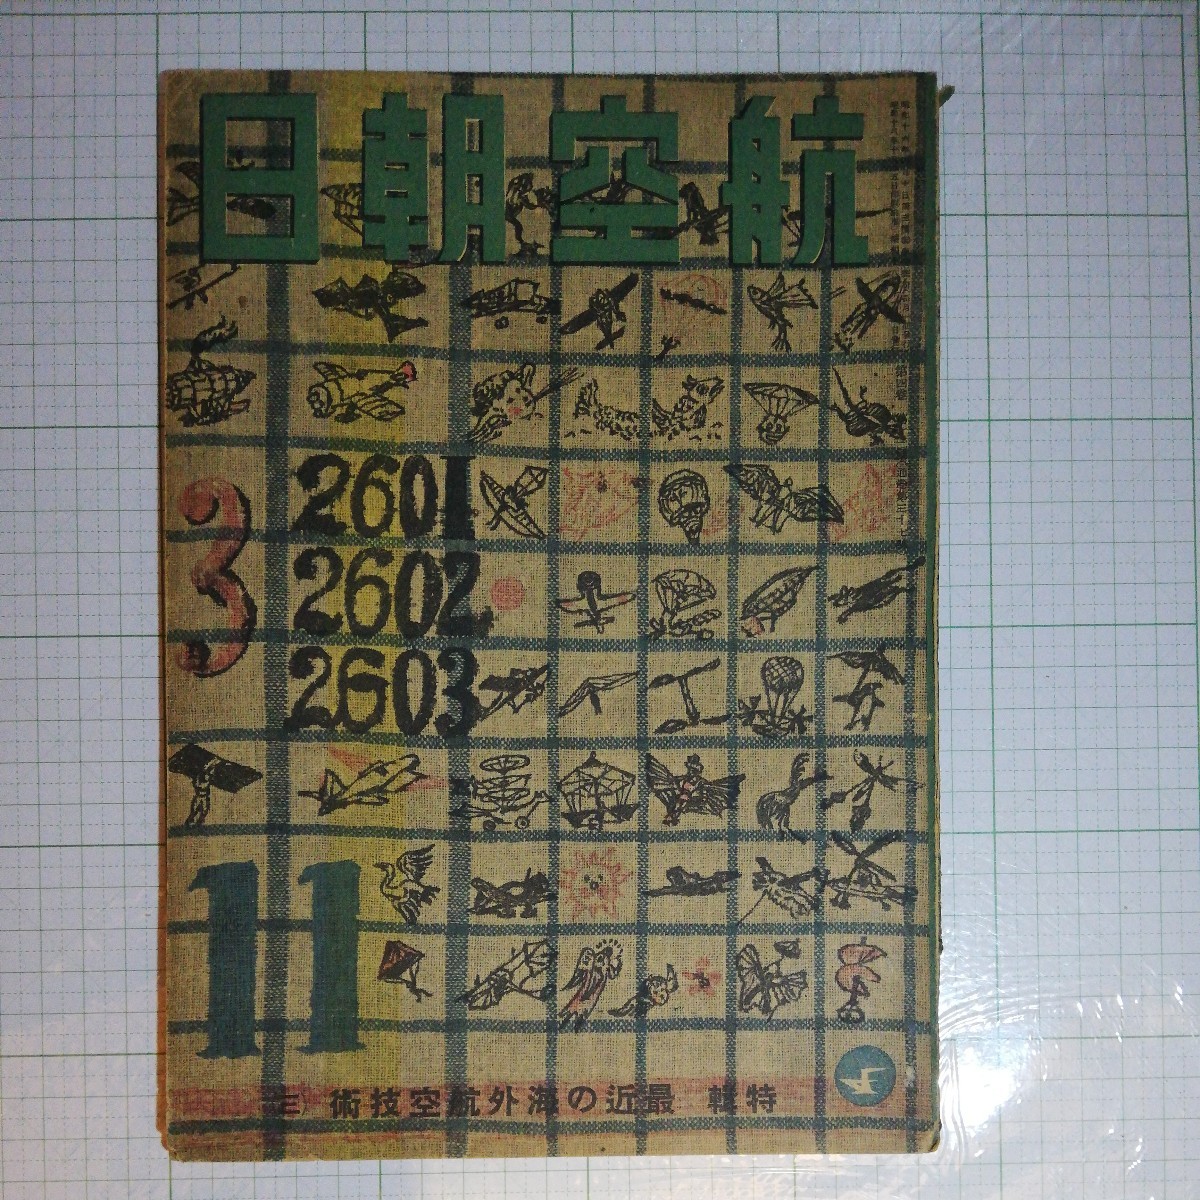 航空朝日
3
2601
2602
2603
11
特輯 最近の海外航空技術(三)